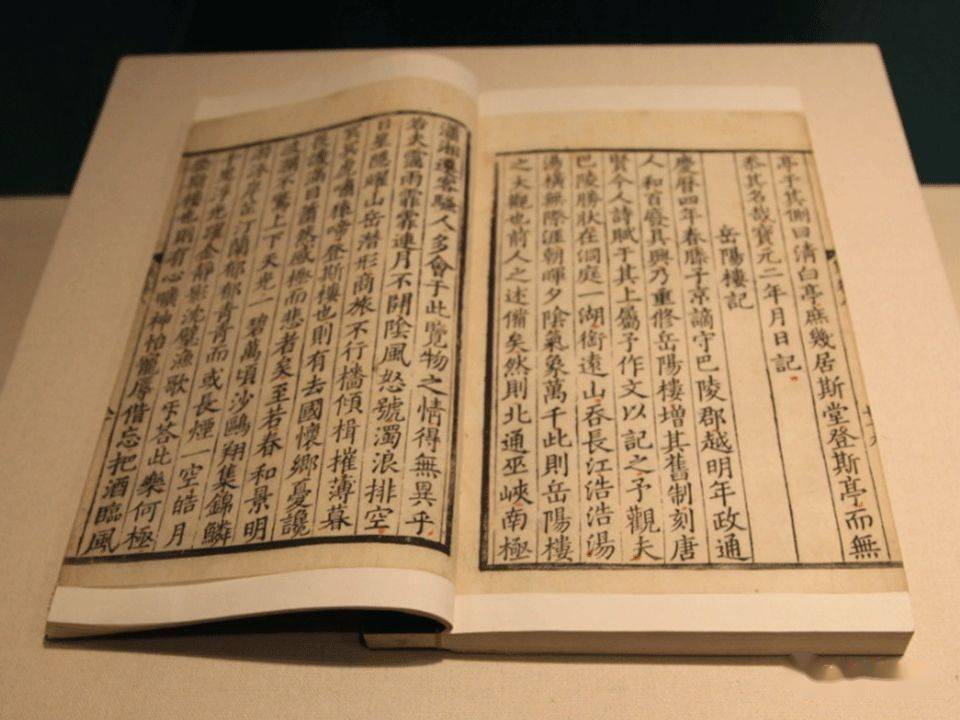 亭于其側曰清白亭庶幾居斯堂登斯亭而無
忝其名哉寶元二年月日記
岳陽樓記
慶曆四年春滕子京謫守巴陵郡越明年政通
人和百廢具興乃重修岳陽樓增其舊制刻唐
賢今人詩賦于其上屬予作文以記之予觀夫
巴陵勝狀在洞庭一湖銜遠山吞長江浩浩湯
湯橫無際涯朝暉夕陰氣象萬千此則岳陽樓
之大觀也前人之述備矣然則北通巫峽南極
瀟湘遷客騷人多會于此覽物之情得無異乎
若夫霪雨霏霏連月不開陰風怒號濁浪排空
日星隱耀山岳潛形商旅不行檣傾楫摧薄暮
冥冥虎嘯猿啼登斯樓也則有去國懷鄉憂讒
畏譏滿目蕭然感極而悲者矣至若春和景明
波瀾不驚上下天光一碧萬頃沙鷗翔集錦鱗
游泳岸芷汀蘭郁郁青青而或長煙一空皓月
千里浮光躍金靜影沈璧漁歌互答此樂何極
登斯樓也則有心曠神怡寵辱偕忘把酒臨風